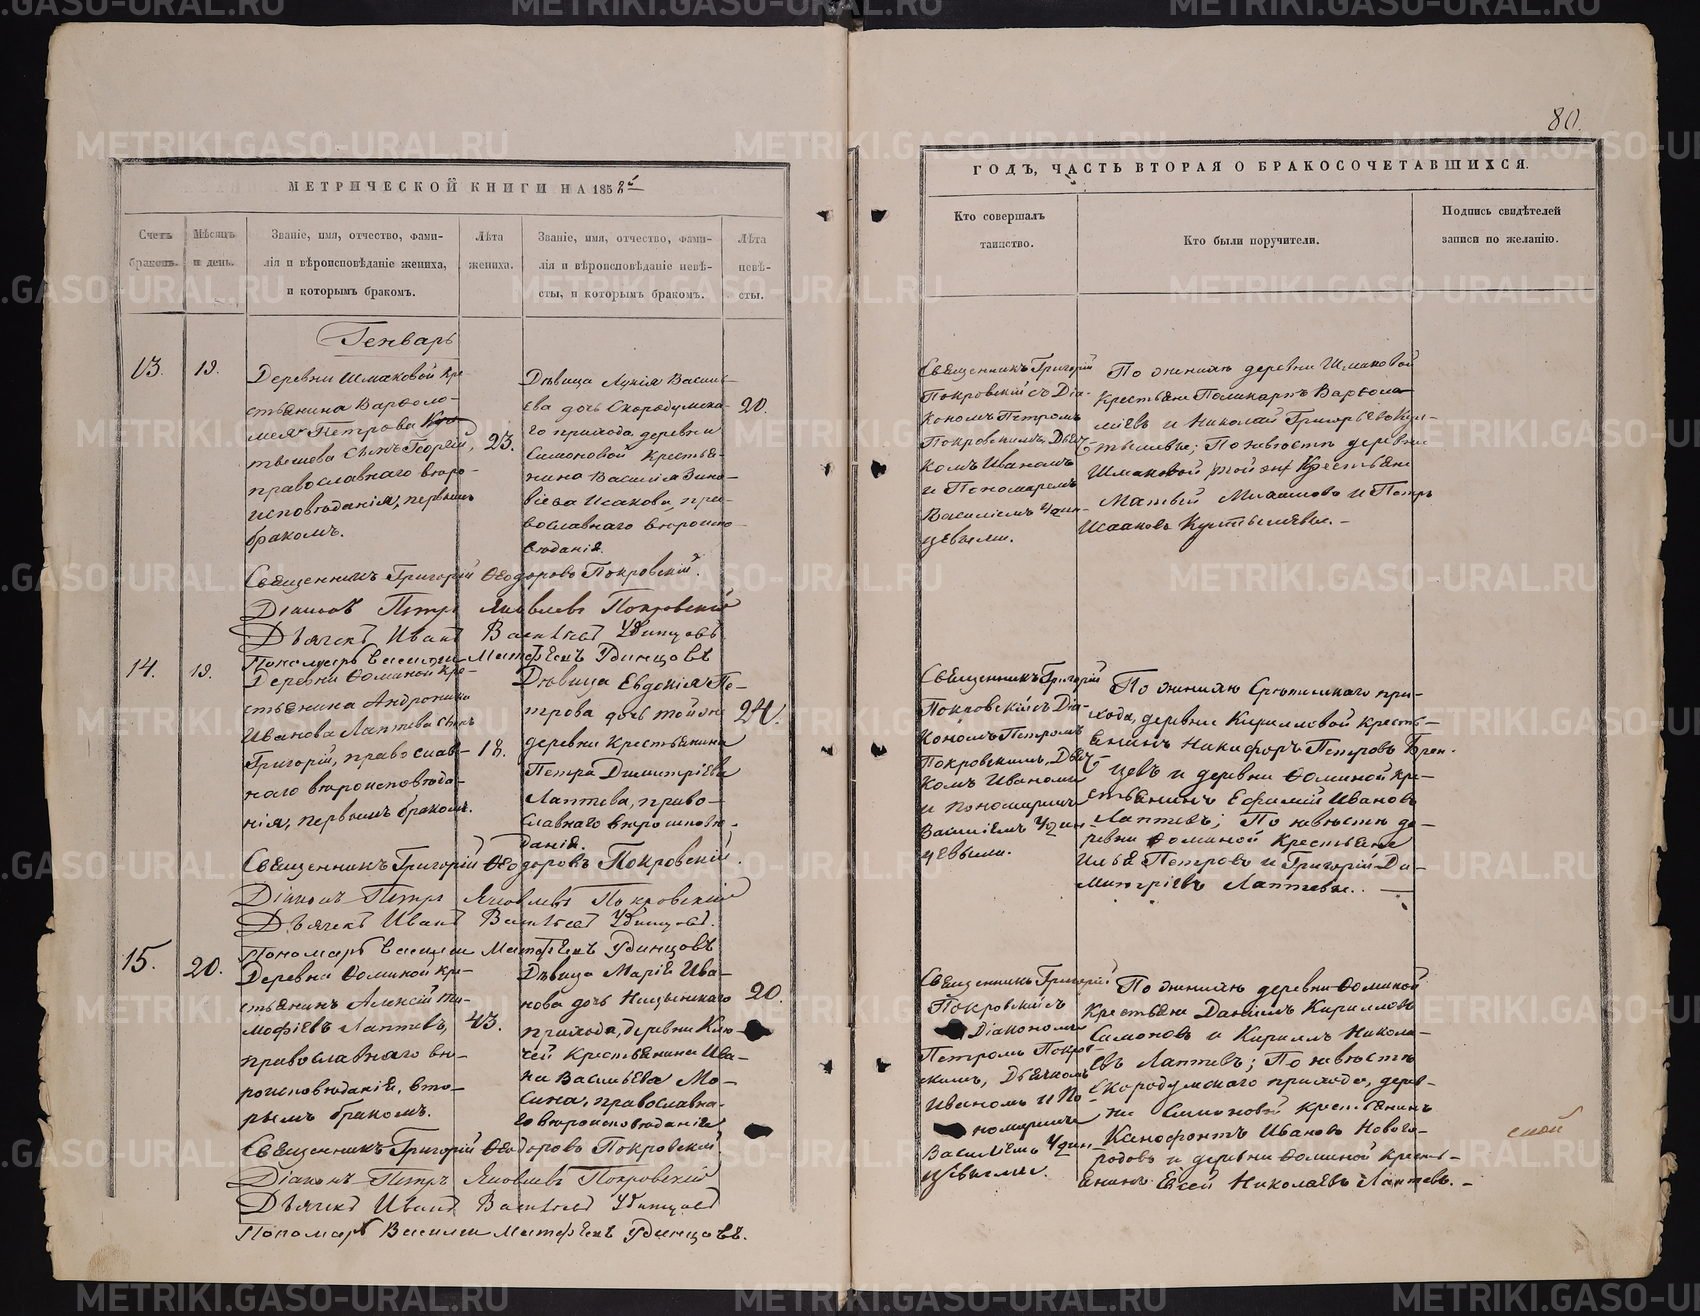 80.
МЕТРИЧЕСКОЙ КНИГИ НА 1858й
ГОДЪ, ЧАСТЬ ВТОРАЯ О БРАКОСОЧЕТАВШИХСЯ.
Счетъ
браковъ.
Мѣсяцъ
и день.
Званіе, имя, отчество, фами-
лія и вѣроисповѣданіе жениха,
и которымъ бракомъ.
Лѣта
жениха.
Званіе, имя, отчество, фами-
лія и вѣроисповѣданіе невѣ-
сты, и которымъ бракомъ.
Лѣта
невѣ-
сты.
Кто совершалъ
таинство.
Кто были поручители.
Подпись свидѣтелей
записи по желанію.
Генварь
13.
19.
Деревни Шмаковой кре-
стьянина Варѳоло-
мея Петрова
сынъ Георгій,
православнаго вѣро-
исповѣданія, первымъ
бракомъ.
23.
Дѣвица Лукія Василь-
ева дочь Скородумска-
го прихода деревни
Симоновой крестья-
нина Василія Зино-
віева Исакова, пра-
вославнаго вѣроиспо-
вѣданія.
20.
Священникъ Григорій
Покровскій съ Діа-
кономъ Петромъ
Покровскимъ, Дьяч-
комъ Иваномъ
и Пономаремъ
Василіемъ Удин-
цевыми.
По женихѣ деревни Шмаковой
крестьяне Поликарпъ Варѳоло-
мѣевъ и Николай Григорьевъ
По невѣстѣ деревни
Шмаковой той же крестьяне
Матвей и Петръ
Исааковъ
Священникъ Григорій Ѳеодоровъ Покровскій.
Діаконъ Петръ Яковлевъ Покровскій
Дьячекъ Иванъ Васильевъ Удинцовъ
Пономарь Василій Матфѣевъ Удинцовъ
14.
19.
Деревни Ѳоминой кре-
стьянина Андроника
Иванова Лаптева сынъ
Григорій, православ-
наго вѣроисповѣда-
нія, первымъ бракомъ.
18.
Дѣвица Евдокія Пе-
трова дочь той же
деревни крестьянина
Петра Димитріева
Лаптева, право-
славнаго вѣроисповѣ-
данія.
24.
Священникъ Григорій
Покровскій съ Діа-
кономъ Петромъ
Покровскимъ, Дьяч-
комъ Иваномъ
и Пономаремъ
Василіемъ Удин-
цевыми.
По женихѣ Срѣтенскаго при-
хода, деревни Кирилловой кресть-
янинъ Никифоръ Петровъ
и деревни Ѳоминой кре-
стьянинъ Ефимій Ивановъ
Лаптевъ; По невѣстѣ де-
ревни Ѳоминой крестьяне
Илья Петровъ и Григорій Ди-
митріевъ Лаптевы.
Священникъ Григорій Ѳеодоровъ Покровскій.
Діаконъ Петръ Яковлевъ Покровскій
Дьячекъ Иванъ Васильевъ Удинцовъ.
Пономарь Василій Матфѣевъ Удинцовъ
15.
20.
Деревни Ѳоминой кре-
стьянинъ Алексій Ти-
моѳіевъ Лаптевъ,
православнаго вѣ-
роисповѣданія, вто-
рымъ бракомъ.
43.
Дѣвица Марія Ива-
нова дочь Ницынскаго
прихода, деревни Клю-
чей крестьянина Ива-
на Васильева Мо-
сина, православна-
го вѣроисповѣданія
20.
Священникъ Григорій
Покровскій съ
Діакономъ
Петромъ Покров-
скимъ, Дьячкомъ
Иваномъ и По-
номаремъ
Василіемъ Удин-
цевыми.
По женихѣ деревни Ѳоминой
крестьяне Даніилъ Кирилловъ
Симоновъ и Кириллъ Никола-
евъ Лаптевъ; По невѣстѣ
Скородумскаго прихода, дерев-
ни Симоновой крестьянинъ
Ксенофонтъ Ивановъ Нового-
родовъ и деревни Ѳоминой кресть-
янинъ Евсей Николаевъ Лаптевъ.
Священникъ Григорій Ѳеодоровъ Покровскій.
Діаконъ Петръ Яковлевъ Покровскій
Дьячекъ Иванъ Васильевъ Удинцовъ
Пономарь Василій Матфѣевъ Удинцовъ.
METRIKI.GASO-URAL.RU